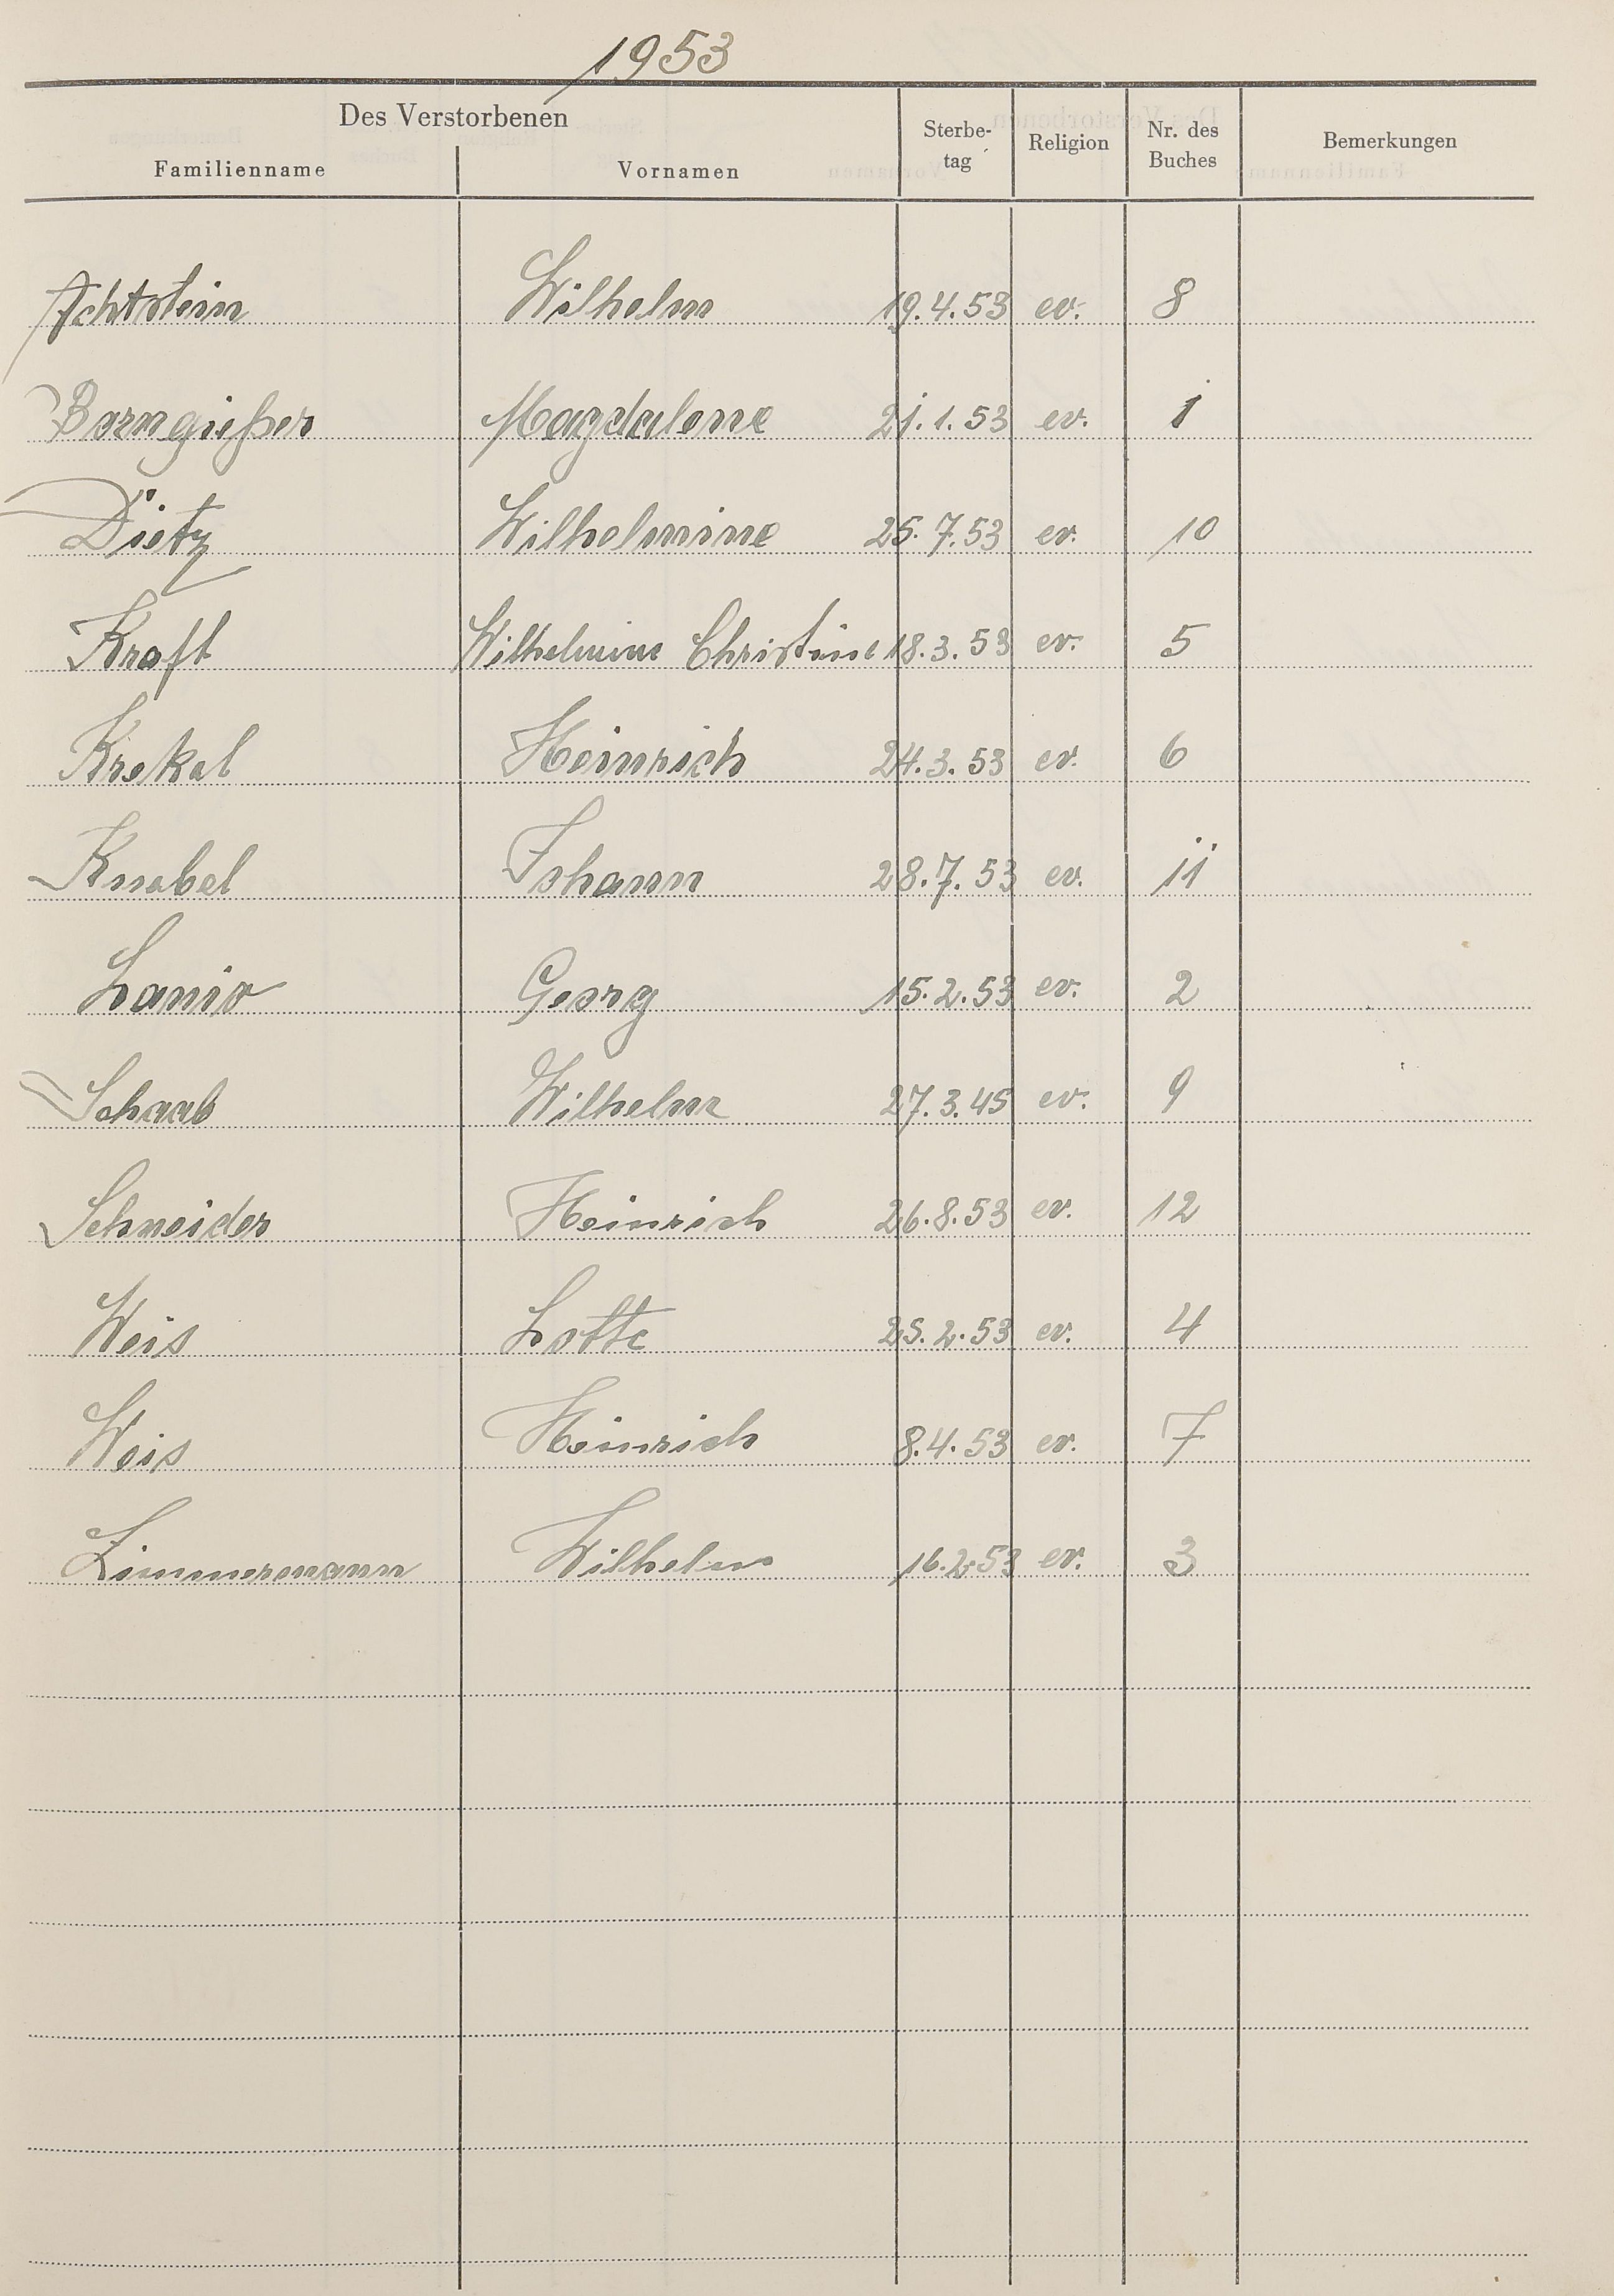 1953
Des Verstorbenen
Familienname Vornamen Sterbe-tag Religion Nr. des Buches Bemerkungen
Achtstein Wilhelm 19.4.53 ev. 8
Borngießer Magdalene 21.1.53 ev. 1
Dietz Wilhelmine 25.7.53 ev. 10
Kraft Wilhelmine Christine 18.3.53 ev. 5
Krekel Heinrich 24.3.53 ev. 6
Knabel Johann 28.7.53 ev. 11
Lanio Georg 15.2.53 ev. 2
Schaab Wilhelm 27.3.45 ev. 9
Schneider Heinrich 26.8.53 ev. 12
Weis Lotte 25.2.53 ev. 4
Weis Heinrich 8.4.53 ev. 7
Zimmermann Wilhelm 16.2.53 ev. 3